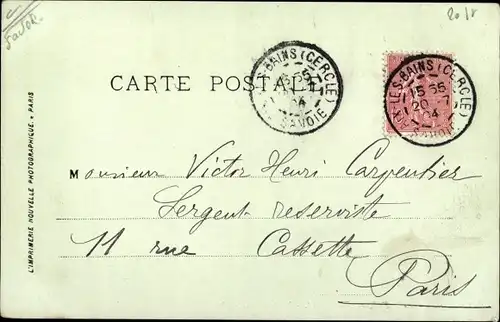 20 18
CARTE POSTALE
S-BAINS (CERCLE)
SAVOIE
LES-BAINS (CERCLE)
15 35
20 -7
04
SAVOIE
Monsieur Victor Henri Carpentier
Sergent reserviste
11 rue Cassette
Paris
L'IMPRIMERIE NOUVELLE PHOTOGRAPHIQUE. PARIS